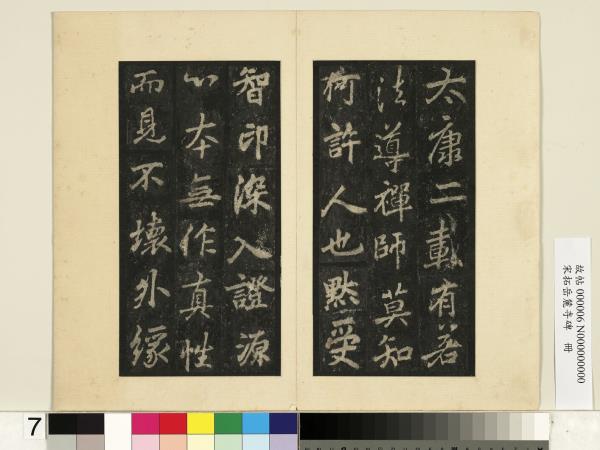 太康二載有若
法導禪師莫知
何許人也默受
智印深入證源
不本無作真性
而見不壞外緣
故帖 000006 N000000000
宋拓岳麓寺碑 冊
7